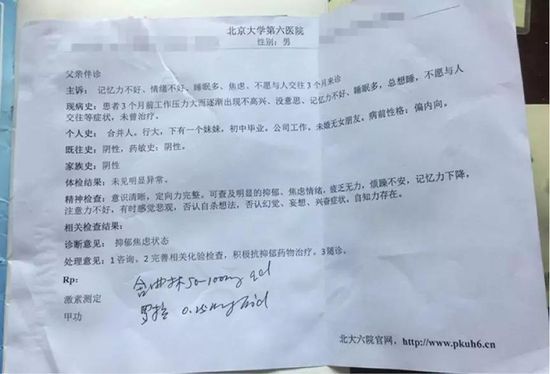 北京大学第六医院
性别：男
父亲伴诊
主诉：记忆力不好、情绪不好、睡眠多、焦虑、不愿与人交往3个月来诊
现病史：患者3个月前工作压力大而逐渐出现不高兴、没意思、记忆力不好、睡眠多，总想睡，不愿与人
交往等症状，未曾治疗。
个人史：合并人。行大，下有一个妹妹。初中毕业。公司工作。未婚无女朋友。病前性格：偏内向。
既往史：阴性，药敏史：阴性。
家族史：阴性
体检结果：未见明显异常。
精神检查：意识清晰，定向力完整。可查及明显的抑郁、焦虑情绪，疲乏无力，烦躁不安，记忆力下降，
注意力不好，有时感觉悲观，否认自杀想法，否认幻觉、妄想、兴奋症状，自知力存在。
相关检查结果：
诊断意见：抑郁焦虑状态
处理意见：1咨询、2完善相关化验检查，积极抗抑郁药物治疗。3随诊。
Rp:
舍曲林 50-100mg qd
激素测定
甲功
罗拉 0.25mg bid
北大六院官网，http://www.pkuh6.cn